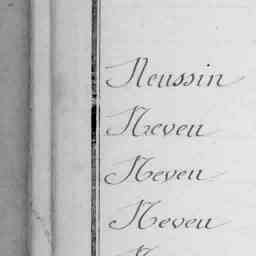 Neussin
Neveu
Neveu
Neveu